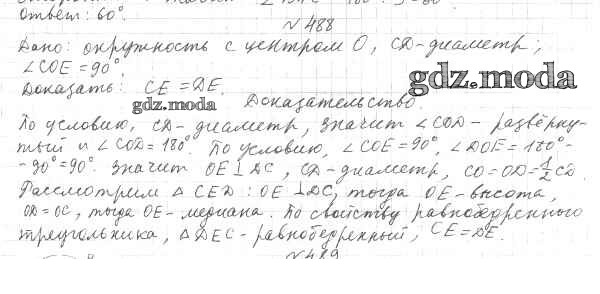 Ответ: 60°.
№ 488
Дано: окружность с центром O, CD-диаметр;
∠COE = 90°.
gdz.moda
Доказать: CE = DE.
gdz.moda
Доказательство.
По условию, CD- диаметр, значит ∠COD- развёрну-
тый и ∠COD = 180°. По условию, ∠COE = 90°, ∠DOE = 180°-
-90°=90°. Значит OE⊥DC, CD-диаметр, CO=OD=1/2CD.
Рассмотрим △CED: OE⊥DC, тогда OE-высота,
OD=OC, тогда OE- медиана. По свойству равнобедренного
треугольника, △DEC-равнобедренный, CE=DE.
№489